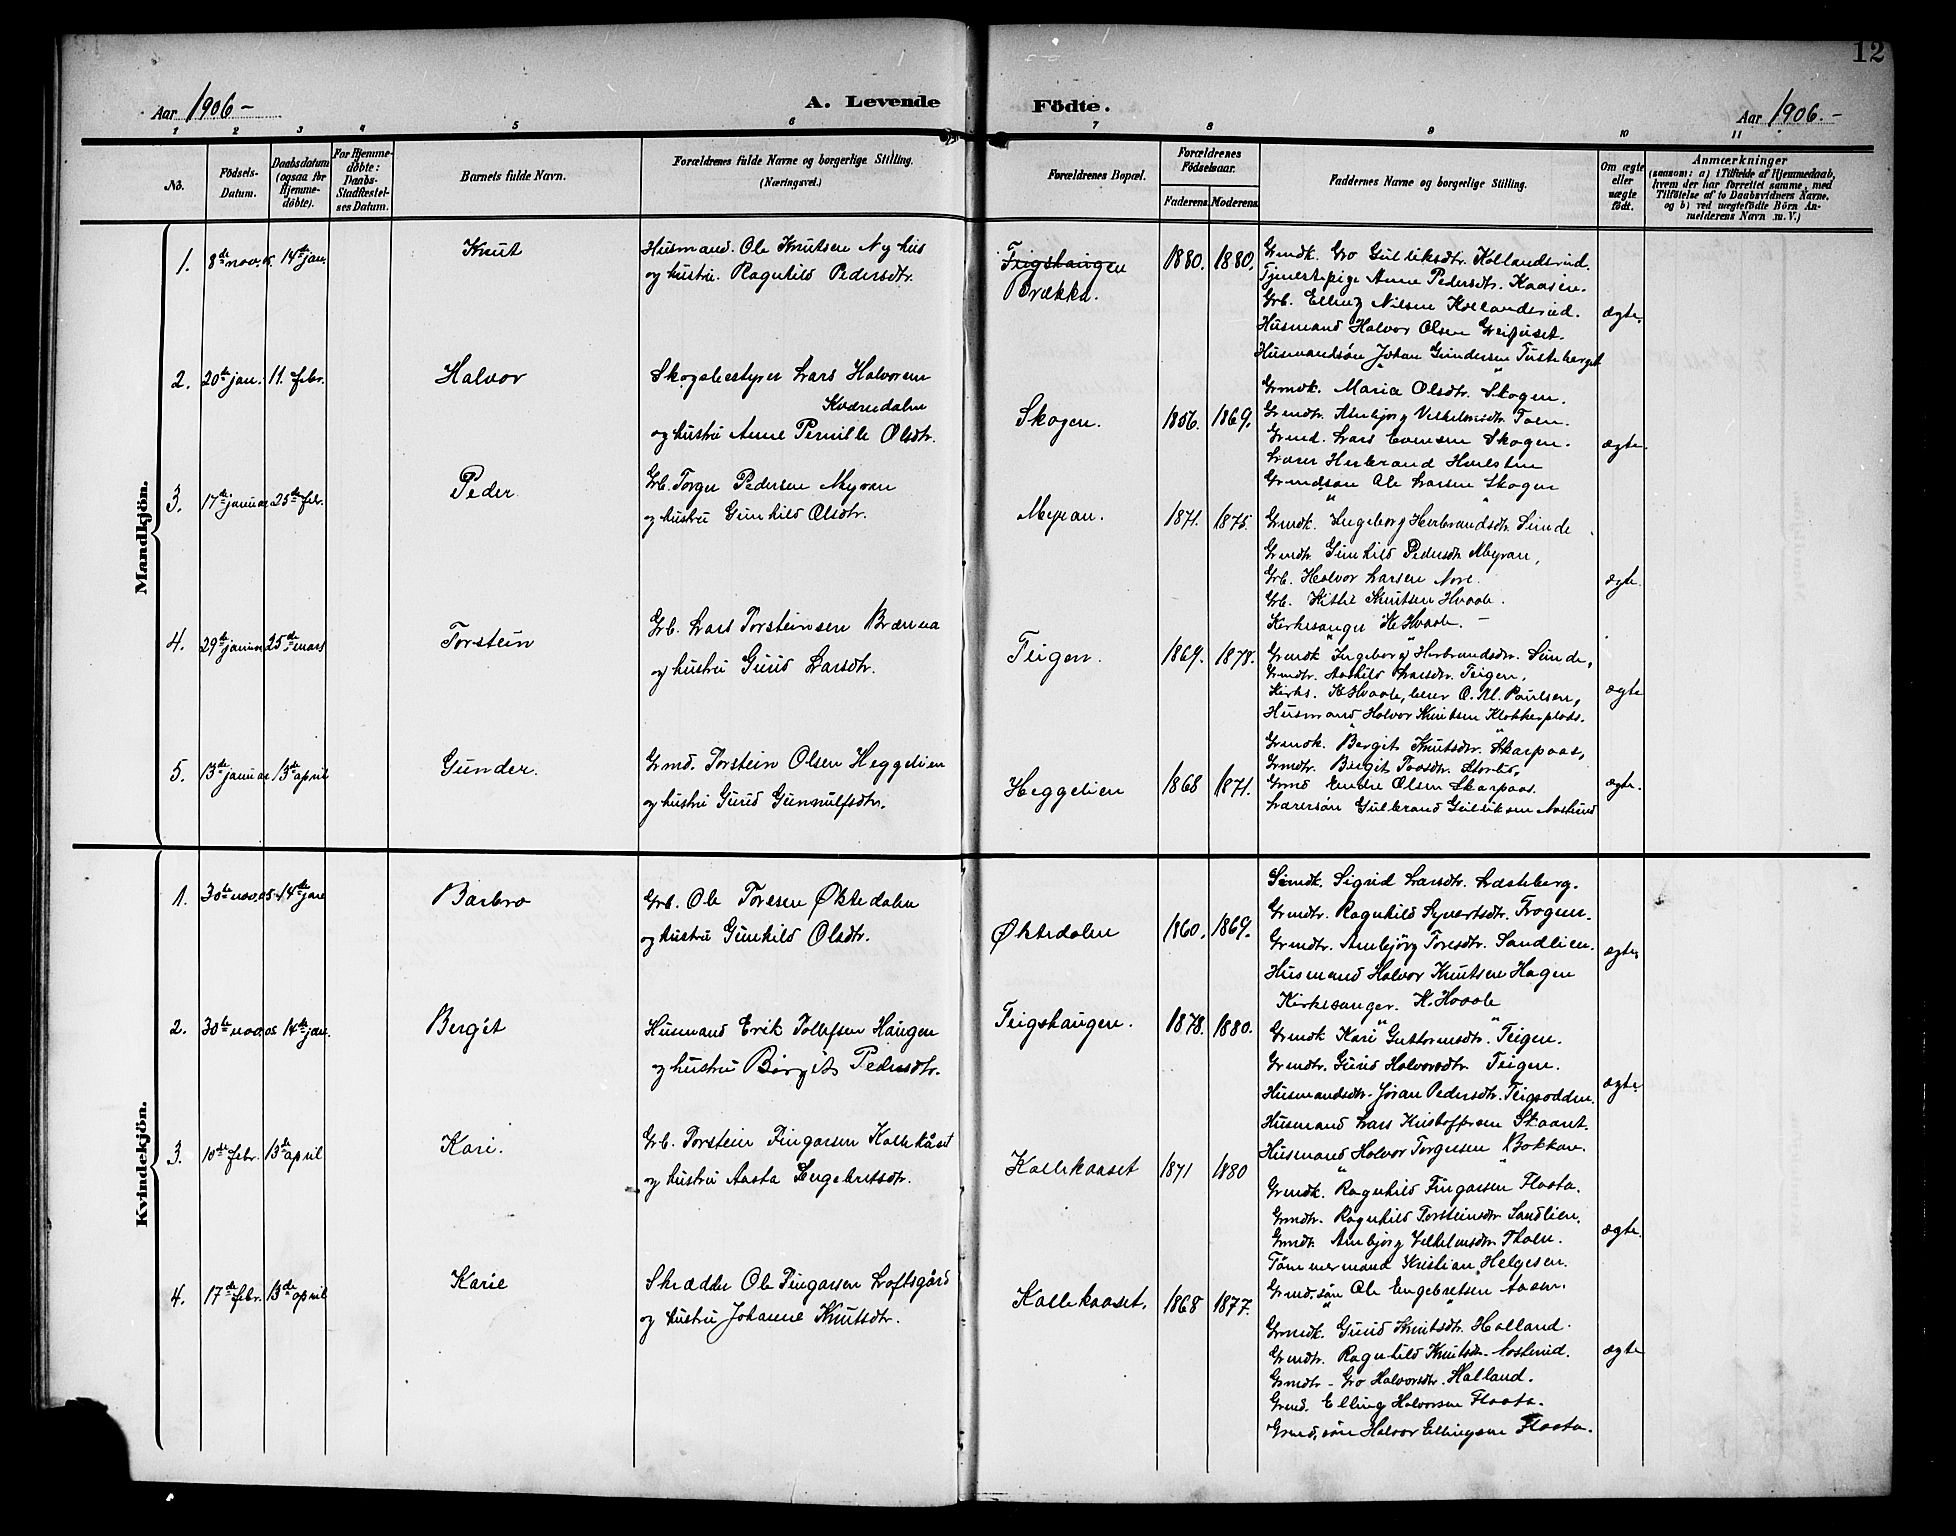 12
Aar 1906 -
A. Levende Födte.
Aar 1906. -
1 2 3 4 5 6 7 8 9 10 11
No.
Födsels-
Datum.
Daabsdatum
(ogsaa for
Hjemme-
döbte).
For Hjemme-
döbte:
Daabs-
Stadfæstel-
ses Datum.
Barnets fulde Navn.
Forældrenes fulde Navne og borgerlige Stilling.
(Næringsvei.)
Forældrenes Bopæl.
Forældrenes
Födselsaar.
Faderens. Moderens.
Faddernes Navne og borgerlige Stilling.
Om ægte
eller
uægte
födt.
Anmærkninger
(saasom: a) i Tilfælde af Hjemmedaab,
hvem der har forrettet samme, med
Tilföielse af to Daabsvidners Navne,
og b) ved uægtefödte Börn An-
melderens Navn m. V.)
Mandkjön.
1. 8de nov. 05. 14de jan. Knut
Husmand. Ole Knutsen Nyhus
og hustru. Ragnhild Pedersdtr.
Teigshaugen
Brækka.
1880. 1880.
Grmdk. Gro Gulliksdtr. Kollandsrud.
Tjenestepige Anne Pedersdtr. Kaasen.
Grb. Elling Nilsen Kollandsrud.
Husmand Halvor Olsen Greipuset.
Husmandsön Johan Gundersen Tusteberget
ægte.
2. 20de jan. 11. febr. Halvor
Skogsbestyrer Lars Halvorsen
Kværndalen
og hustru Anne Pernille Olsdtr.
Skogen. 1856. 1869.
Grmdk. Maria Olsdtr. Skogen.
Grmdtr. Ambjörg Vilhelmsdtr. Toen.
Grmd. Lars Evensen Skogen.
Lærer Herbrand
Grmdsön Ole Larsen Skogen
ægte.
3. 17de januar 25de febr. Peder
Grb. Torger Pedersen Myran
og hustru Gunhild Olsdtr.
Myran. 1871. 1875.
Grmdk. Ingeborg Herbrandsdtr. Simde
Grmdtr. Gunhild Pedersdtr. Myran,
Grb. Halvor Larsen Nore.
Grb. Kittil Knutsen Hvaale.
Kirkesanger K. Hvaale. -
ægte.
4. 29de januar 25de mars Torstein
Grb. Lars Torsteinsen Brænna
og hustru Gurid Larsdtr.
Teigen. 1869. 1878.
Grmdk Ingeborg Herbrandsdtr. Simde,
Grmdtr. Aashild Larsdtr. Teigen,
Kirks. K. Hvaale, lærer O. M. Paulsen,
Husmand Halvor Knutsen Klokkerplads.
ægte
5. 13de januar 13de april Gunder.
Grmd. Torstein Olsen Heggelien
og hustru Gurid Gunnulfsdtr.
Heggelien 1868 1871.
Grmdk. Bergit Knutsdtr. Skarpaas,
Grmdtr. Birgit Toosdtr. Storlid,
Grmd Endre Olsen Skarpaas.
Lærersön Gulbrand Gulliksen Nosterud
ægte.
Kvindekjön.
1. 30te nov. 05. 14de jan Barbro
Grb. Ole Toresen Øktedalen
og hustru Gunhild Olsdtr.
Øktedalen 1860. 1869.
Grmdk. Sigrid Larsdtr. Læsteberg.
Grmdtr. Ragnhild Syvertsdtr. Frogner.
Grmdtr. Ambjörg Toresdtr. Sandlien.
Husmand Halvor Knutsen Hagen
Kirkesanger. K. Hvaale
ægte.
2. 30te nov. 05 14de jan. Bergit
Husmand Erik Tollefsen Haugen
og hustru Birgit Pedersdtr.
Teigshaugen. 1878. 1880.
Grmdk Kari Guttormsdtr. Teigen.
Grmdtr. Gurid Halvorsdtr. Teigen.
Husmandsdtr. Jöran Pedersdtr. Teigsodden.
Husmand Lars Kristoffersen Skaant.
Husmand Halvor Torgersen Bokkan.
ægte.
3. 10de febr. 13de april Kari.
Grb. Torstein Fingarsen Kallekåset
og hustru Aasta Engebretsdtr.
Kallekaaset 1871 1880
Grmdk. Ragnhild Fingarsen Flaata.
Grmdtr. Ragnhild Torsteinsdtr. Sandlien.
Grmdk. Ambjörg Vilhelmsdtr. Thoen.
Tömmermand Kristian Helgesen.
Grmd.sön Ole Engebretsen Aasen.
ægte.
4. 17de febr. 13de april Karie
Skrædder Ole Fingarsen Loftsgård
og hustru Johanne Knutsdtr.
Kallekaaset. 1868 1877.
Grmdk. Gurid Knutsdtr. Holland.
Grmdtr. Ragnhild Knutsdtr. Nosterud.
Grmdtr - Gro Halvorsdtr. Halland.
Grmd. Elling Halvorsen Flaata.
Grmd.sön Halvor Ellingsen Flaata.
ægte